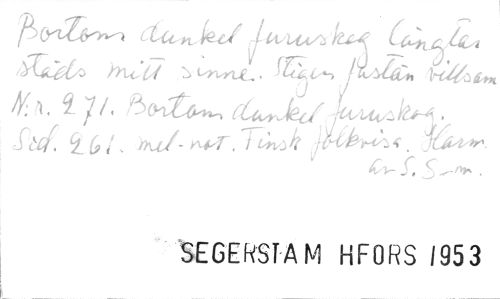 Bortom dunkel furuskog längtar
städs mitt sinne. Stigen fastän villsam
N:r. 271. Bortom dunkel furuskog.
Sid. 261. mel-not. Finsk folkvisa. Harm.
av S. S-m.
SEGERSTAM HFORS 1953